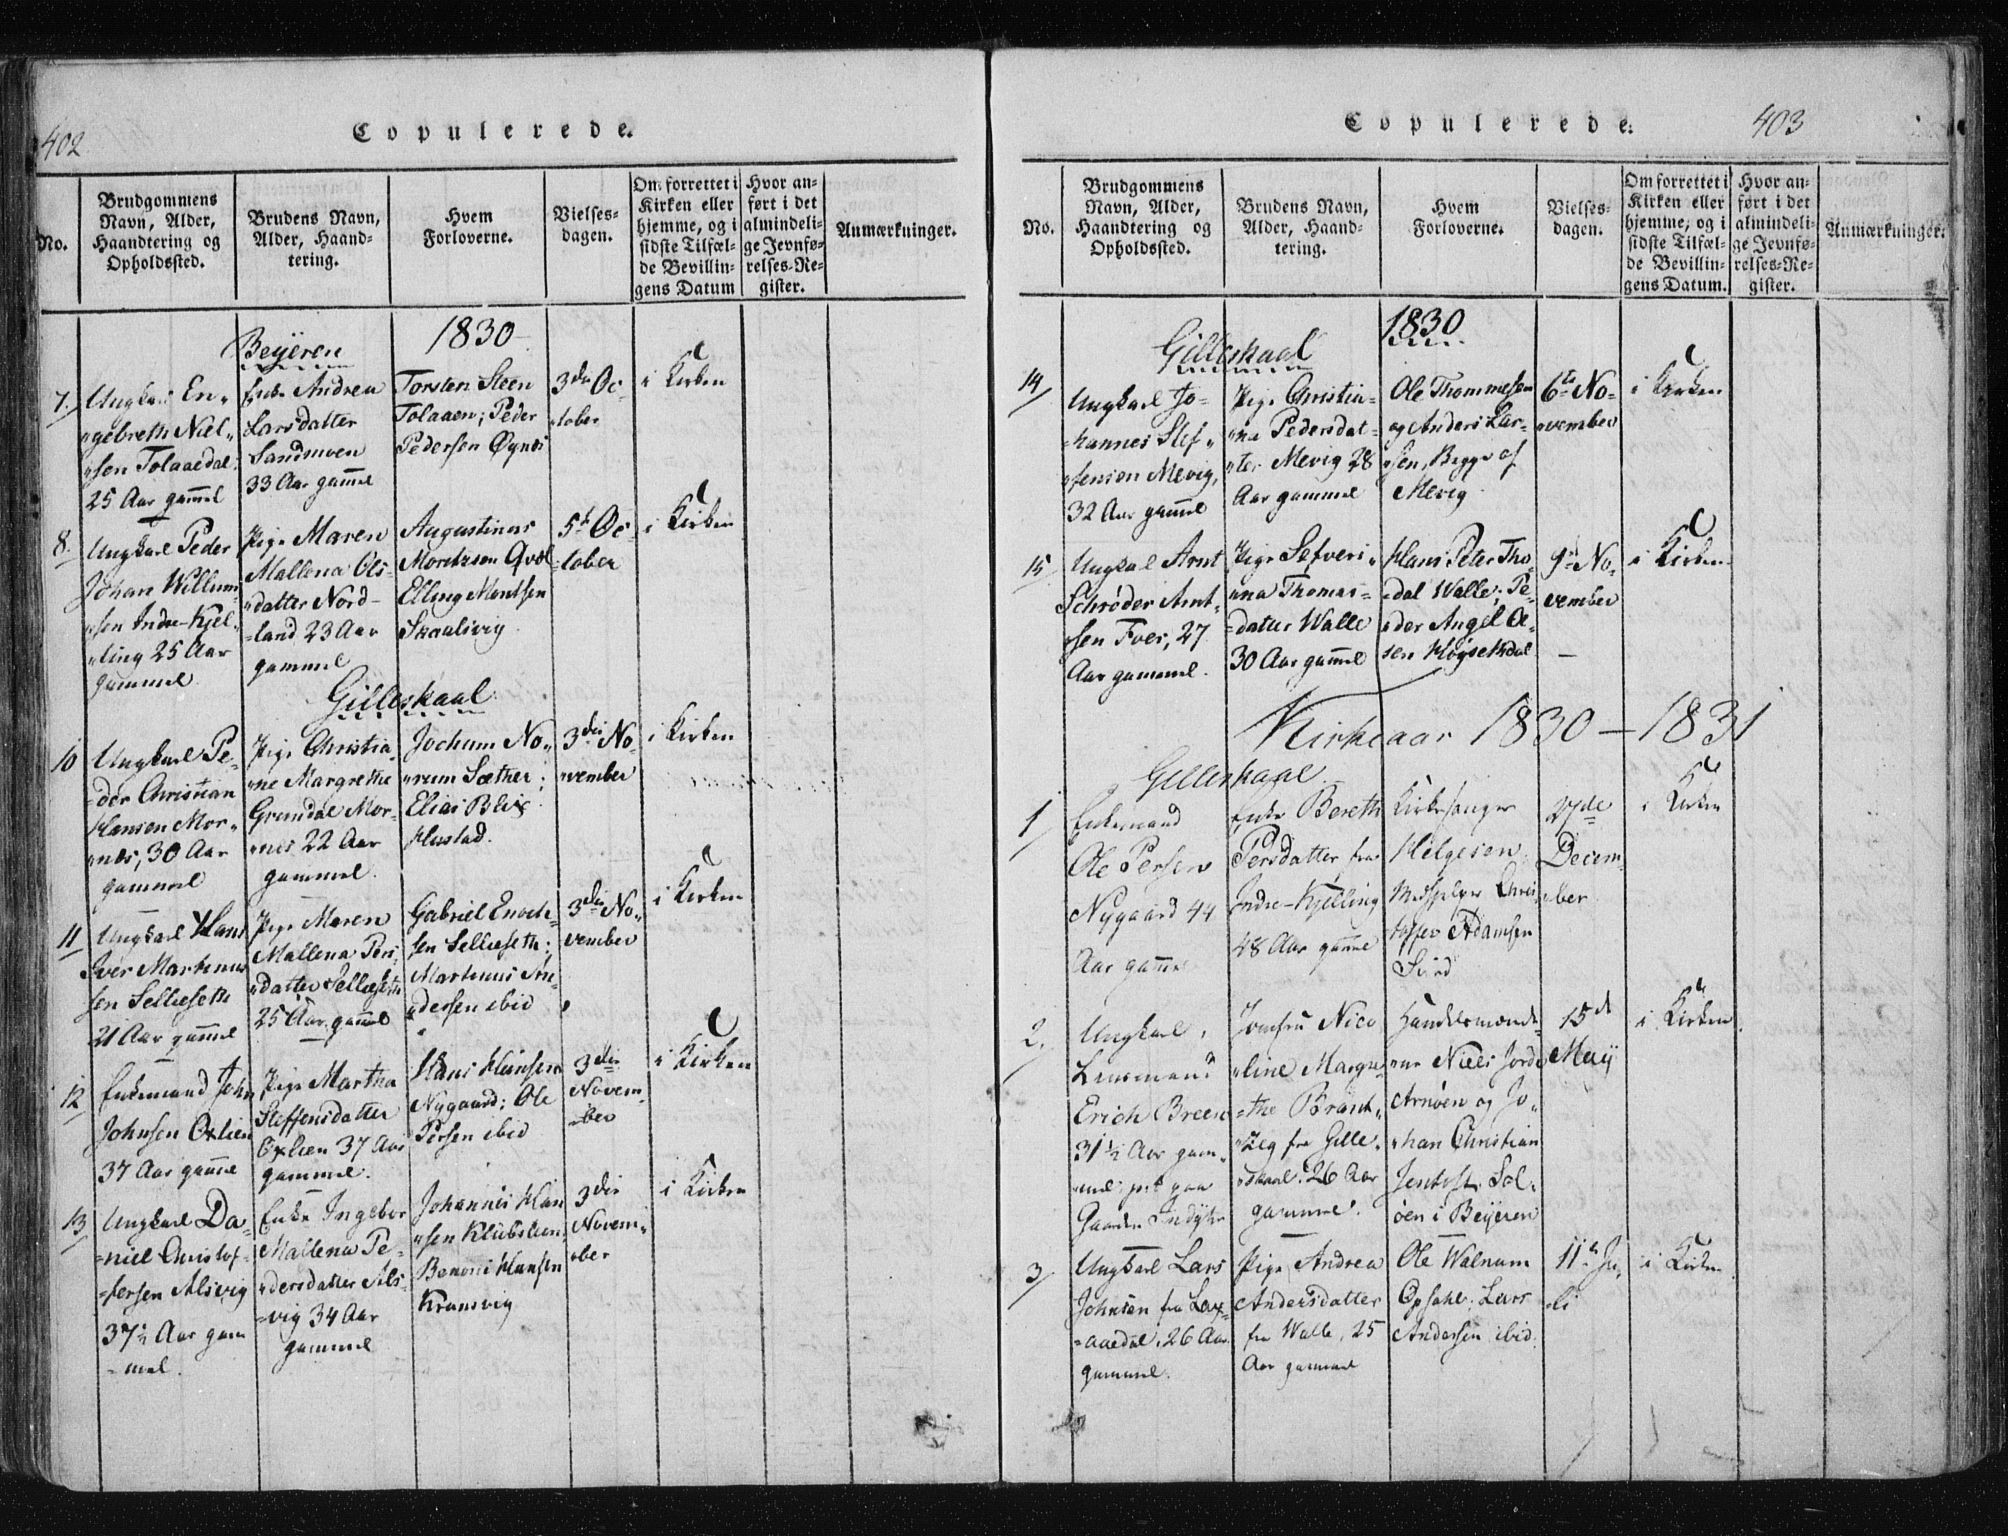 402
Copulerede.
No.
Brudgommens
Navn, Alder,
Haandtering og
Opholdssted.
Brudens Navn,
Alder, Haand-
tering.
Hvem
Forloverne.
Vielses-
dagen.
Om forrettet i
Kirken eller
hjemme, og i
sidste Tilfæl-
de Bevillin-
gens Datum
Hvor an-
ført i det
almindeli-
ge Jevnfø-
relses-Re-
gister.
Anmærkninger.
Beijeren
1830
7.
Ungkarl En-
gebreth Niel-
sen Tolaaedal
25 Aar gammel
Enke Andrea
Larsdatter
Sandmoen
33 Aar gammel
Torsten Steen
Tolaaen; Peder
Pedersen Øynes
3die Oc-
tober
i Kirken
8.
Ungkarl Peder
Johan Willum-
sen Indre-Kjel-
ling 25 Aar
gammel
Pige Maren
Mallena Ols-
datter Nord-
land 23 Aar
gammel
Augustinus
Moritzsen
Elling Montsen
Skaalsvig
5te Oc-
tober
i Kirken
Gilleskaal
10
Ungkarl Pe-
der Christian
Hansen Mor-
nes, 30 Aar
gammel
Pige Christia-
ne Margrethe
Grundal Mor-
nes 22 Aar
gammel.
Jochum No-
rum Sæther;
Elias Blix
Hustad.
3die No-
vember
i Kirken
11
Ungkarl Hans
Iver Martinus
sen Sellæseth
21 Aar gammel
Pige Maren
Mallena Pers-
datter Sellæseth
25 Aar gammel
Gabriel Enoch-
sen Sellæseth;
Martinus An-
dersen ibid
3die No-
vember
i Kirken
12
Enkemand John
Johnsen Oxlien
37 Aar gamme
Pige Martha
Steffensdatter
Oxlien 37 Aar
gammel.
Hans Hansen
Nygaard; Ole
Persen ibid
3die
Novem-
ber
i Kirken
13
Ungkarl Da-
niel Christof-
fersen Alsvig
37½ Aar gam
mel.
Enke Ingebor
Mallena Pe-
dersdatter Als-
vig 34 Aar
gammel
Johannes Han
sen
Benoni Hansen
Kransvig
3die
Novem-
ber
i Kirken
Copulerede.
403
No.
Brudgommens
Navn, Alder,
Haandtering og
Opholdssted.
Brudens Navn,
Alder, Haand-
tering.
Hvem
Forloverne.
Vielses-
dagen.
Om forrettet i
Kirken eller
hjemme, og i
sidste Tilfæl-
de Bevillin-
gens Datum.
Hvor an-
ført i det
almindeli-
ge Jevnfø-
relses-Re-
gister.
Anmærkninger.
Gilleskaal
1830
14
Ungkarl Jo-
hannes Stef-
fensen Mevig,
32 Aar gammel
Pige Christia-
na Pedersdat-
ter Mevig 28
Aar gammel
Ole Thommesen
og Anders Lar-
sen, Begge af
Mevig
6te No-
vember
i Kirken
15
Ungkarl Arnt
Schrøder Arnt-
sen Fver, 27
Aar gammel.
Pige Sefveri-
na Thomas-
datter Walle
30 Aar gammel
Hans Peter Tho-
dal Walle; Pe-
der Angel Ol-
sen Høgsethdal
9de No-
vember
i Kirken
Kirkeaar 1830 - 1831
Gilleskaal
1
Enkemand
Ole Persen
Nygaard 44
Aar gamm
Enke Bereth
Persdatter, fra
Indre-Kjelling
48 Aar gamme
Kirkesanger
Helgesen
Chris-
toffer Adamsen
27de
Decem-
ber
i Kirken
2.
Ungkarl,
Lensmand
Erich Breen
31½ Aar gam-
mel, paa
Gaarden Indyhr
Jomfru Nico
line Margre-
the Brant-
zeg fra Gille-
skaal. 26 Aar
gammel.
Handelsmænde-
ne Niels Jorde
Arnøen og Jo-
han Christian
Jentoft Sol-
øen i Beijeren
15de
Maij
i Kirken
3
Ungkarl Lars
Johnsen fra Lax-
aaedal, 26 Aar
gammel.
Pige Andrea
Andersdatter
fra Walle, 25
Aar gammel
Ole Walnum
Opsahl; Lars
Andersen ibid.
11te Ju-
li
i Kirken